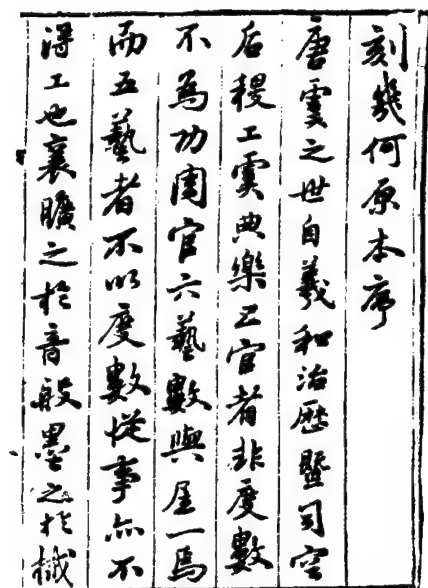 刻幾何原本序
唐虞之世自羲和治歷暨司空
后稷工虞典樂五官者非度數
不為功周官六藝數與居一焉
而五藝者不以度數從事亦不
得工也襄曠之於音般墨之於械